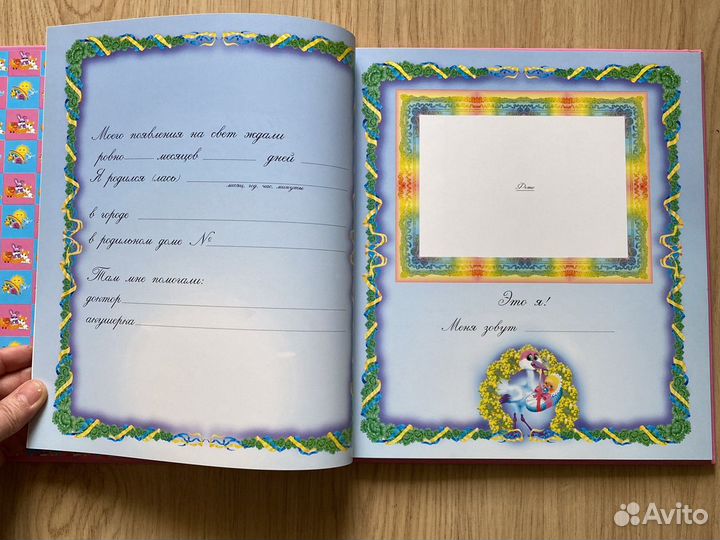 Моего появления на свет ждали
ровно____ месяцев ________ дней ______
Я родился (лась) ________________
месяц, год, час, минуты
в городе ________________
в родильном доме № ________________
Там мне помогали:
доктор ________________
акушерка ________________
Фото
Это я!
Меня зовут ____________
Avito